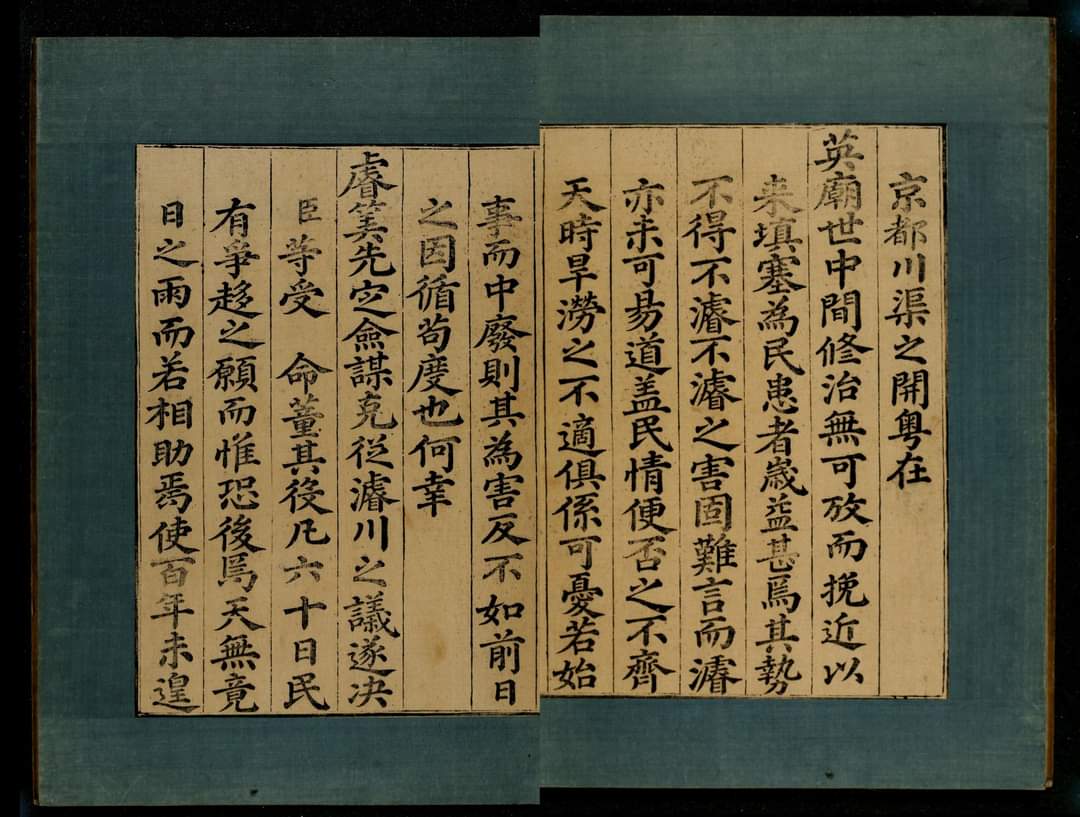 京都川渠之開粤在
英廟世中間修治無可攷而挽近以
来填塞為民患者歲益甚焉其勢
不得不濬不濬之害固難言而濬
亦未可易道盖民情便否之不齊
天時旱澇之不適俱係可憂若始
事而中廢則其為害反不如前日
之因循苟度也何幸
睿筭先定僉謀克從濬川之議遂决
臣等受 命董其役凡六十日民
有爭趍之願而惟恐後焉天無竟
日之雨而若相助焉使百年未遑